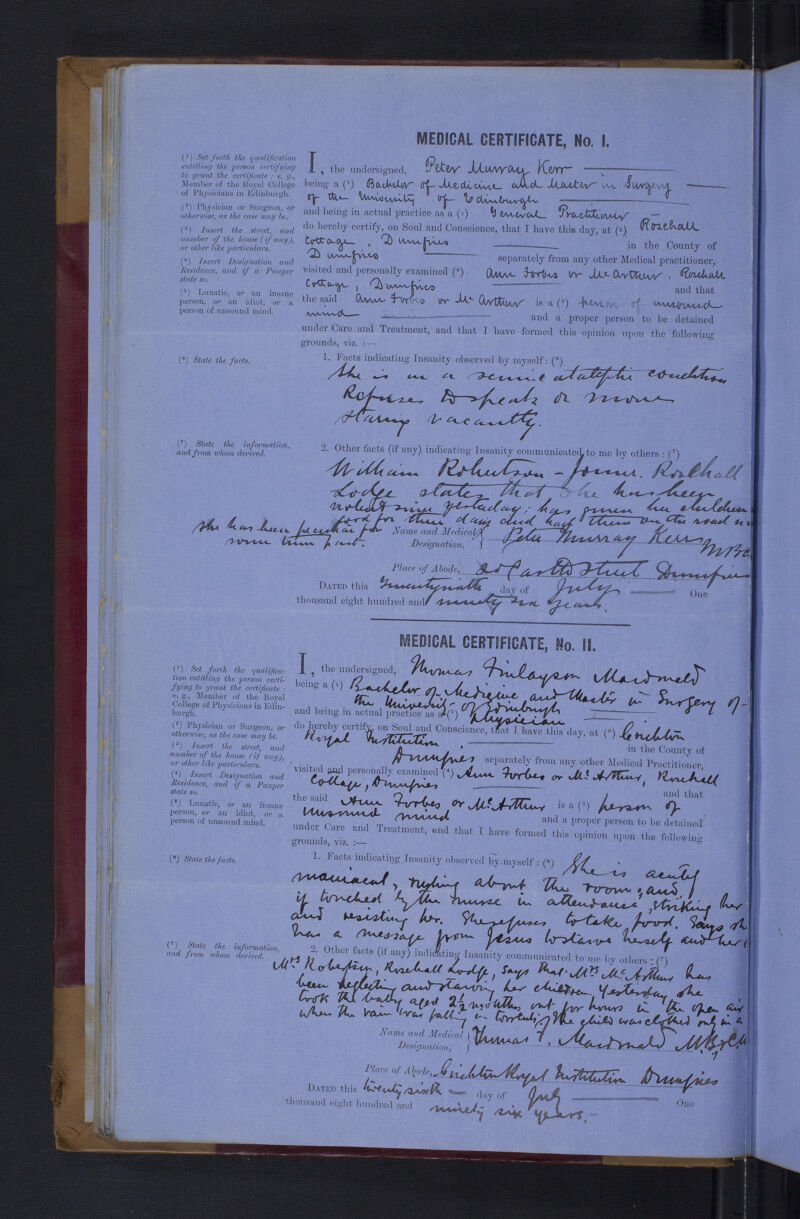 MEDICAL CERTIFICATE, No. I.
(¹) Set forth the qualification
entitling the person certifying
to grant the certificate : e. g.,
Member of the Royal College
of Physicians in Edinburgh.
(²) Physician or Surgeon, or
otherwise, as the case may be.
(³) Insert the street, and
number of the house (if any),
or other like particulars.
(⁴) Insert Designation and
Residence, and if a Pauper
state so.
(⁵) Lunatic, or an insane
person, or an idiot, or a
person of unsound mind.
I, the undersigned, Peter Murray Kerr
being a (¹) Bachelor of Medicine and Master in Surgery
of the University of Edinburgh
and being in actual practice as a (²) General Practitioner
do hereby certify, on Soul and Conscience, that I have this day, at (³) Rosehall
Cottage, Dumfries in the County of
Dumfries separately from any other Medical practitioner,
visited and personally examined (⁴) Ann Forbes or McArthur. Rosehall
Cottage, Dumfries and that
the said Ann Forbes or Mc Arthur is a (⁵) person of unsound
mind and a proper person to be detained
under Care and Treatment, and that I have formed this opinion upon the following
grounds, viz. :—
(⁶) State the facts.
1. Facts indicating Insanity observed by myself : (⁶)
She is in a semicataleptic condition
Refuses to speak or move
staring vacantly.
(⁷) State the information,
and from whom derived.
2. Other facts (if any) indicating Insanity communicated to me by others : (⁷)
William Robertson - Joiner. Rosehall
Lodge states that she has been
violent since yesterday: has given her children
food for their days and had them on the road
she has been peculiar for
some time past.
Name and Medical Designation. Peter Murray Kerr MB
Place of Abode, Castle Street Dumfries
DATED this Twentysixth day of July One
thousand eight hundred and ninety six years.
MEDICAL CERTIFICATE, No. II.
(¹) Set forth the qualifica-
tion entitling the person certi-
fying to grant the certificate :
e. g., Member of the Royal
College of Physicians in Edin-
burgh.
(²) Physician or Surgeon, or
otherwise, as the case may be.
(³) Insert the street, and
number of the house (if any),
or other like particulars.
(⁴) Insert Designation and
Residence, and if a Pauper
state so.
(⁵) Lunatic, or an insane
person, or an idiot, or a
person of unsound mind.
I, the undersigned, Thomas Finlayson Macdonald
being a (¹) Bachelor of Medicine and Master in Surgery of
the University of Edinburgh
and being in actual practice as a (²) Physician
do hereby certify, on Soul and Conscience, that I have this day, at (³) Crichton
Royal Institution in the County of
Dumfries separately from any other Medical Practitioner,
visited and personally examined (⁴) Ann Forbes or McArthur, Rosehall
Cottage, Dumfries and that
the said Ann Forbes or McArthur is a (⁵) person of
unsound mind and a proper person to be detained
under Care and Treatment, and that I have formed this opinion upon the following
grounds, viz. :—
(⁶) State the facts.
1. Facts indicating Insanity observed by myself : (⁶) She is acutely
maniacal, rushing about the room, and,
if touched by the nurse in attendance, striking her
and resisting her. She refuses to take food. Says sh
has a message from Jesus to starve herself and her
(⁷) State the information,
and from whom derived.
2. Other facts (if any) indicating Insanity communicated to me by others : (⁷)
Mrs Robertson, Rosehall Lodge, says that Mrs McArthur has
been neglecting and starving her children. Yesterday she
took the baby aged 2½ months out for hours in the open air
when the rain was falling in torrents; the child was clothed only in a
Name and Medical Designation, Thomas F. Macdonald M.B.,C.M
Place of Abode, Crichton Royal Institution Dumfries
DATED this twenty sixth day of July One
thousand eight hundred and ninety six years.